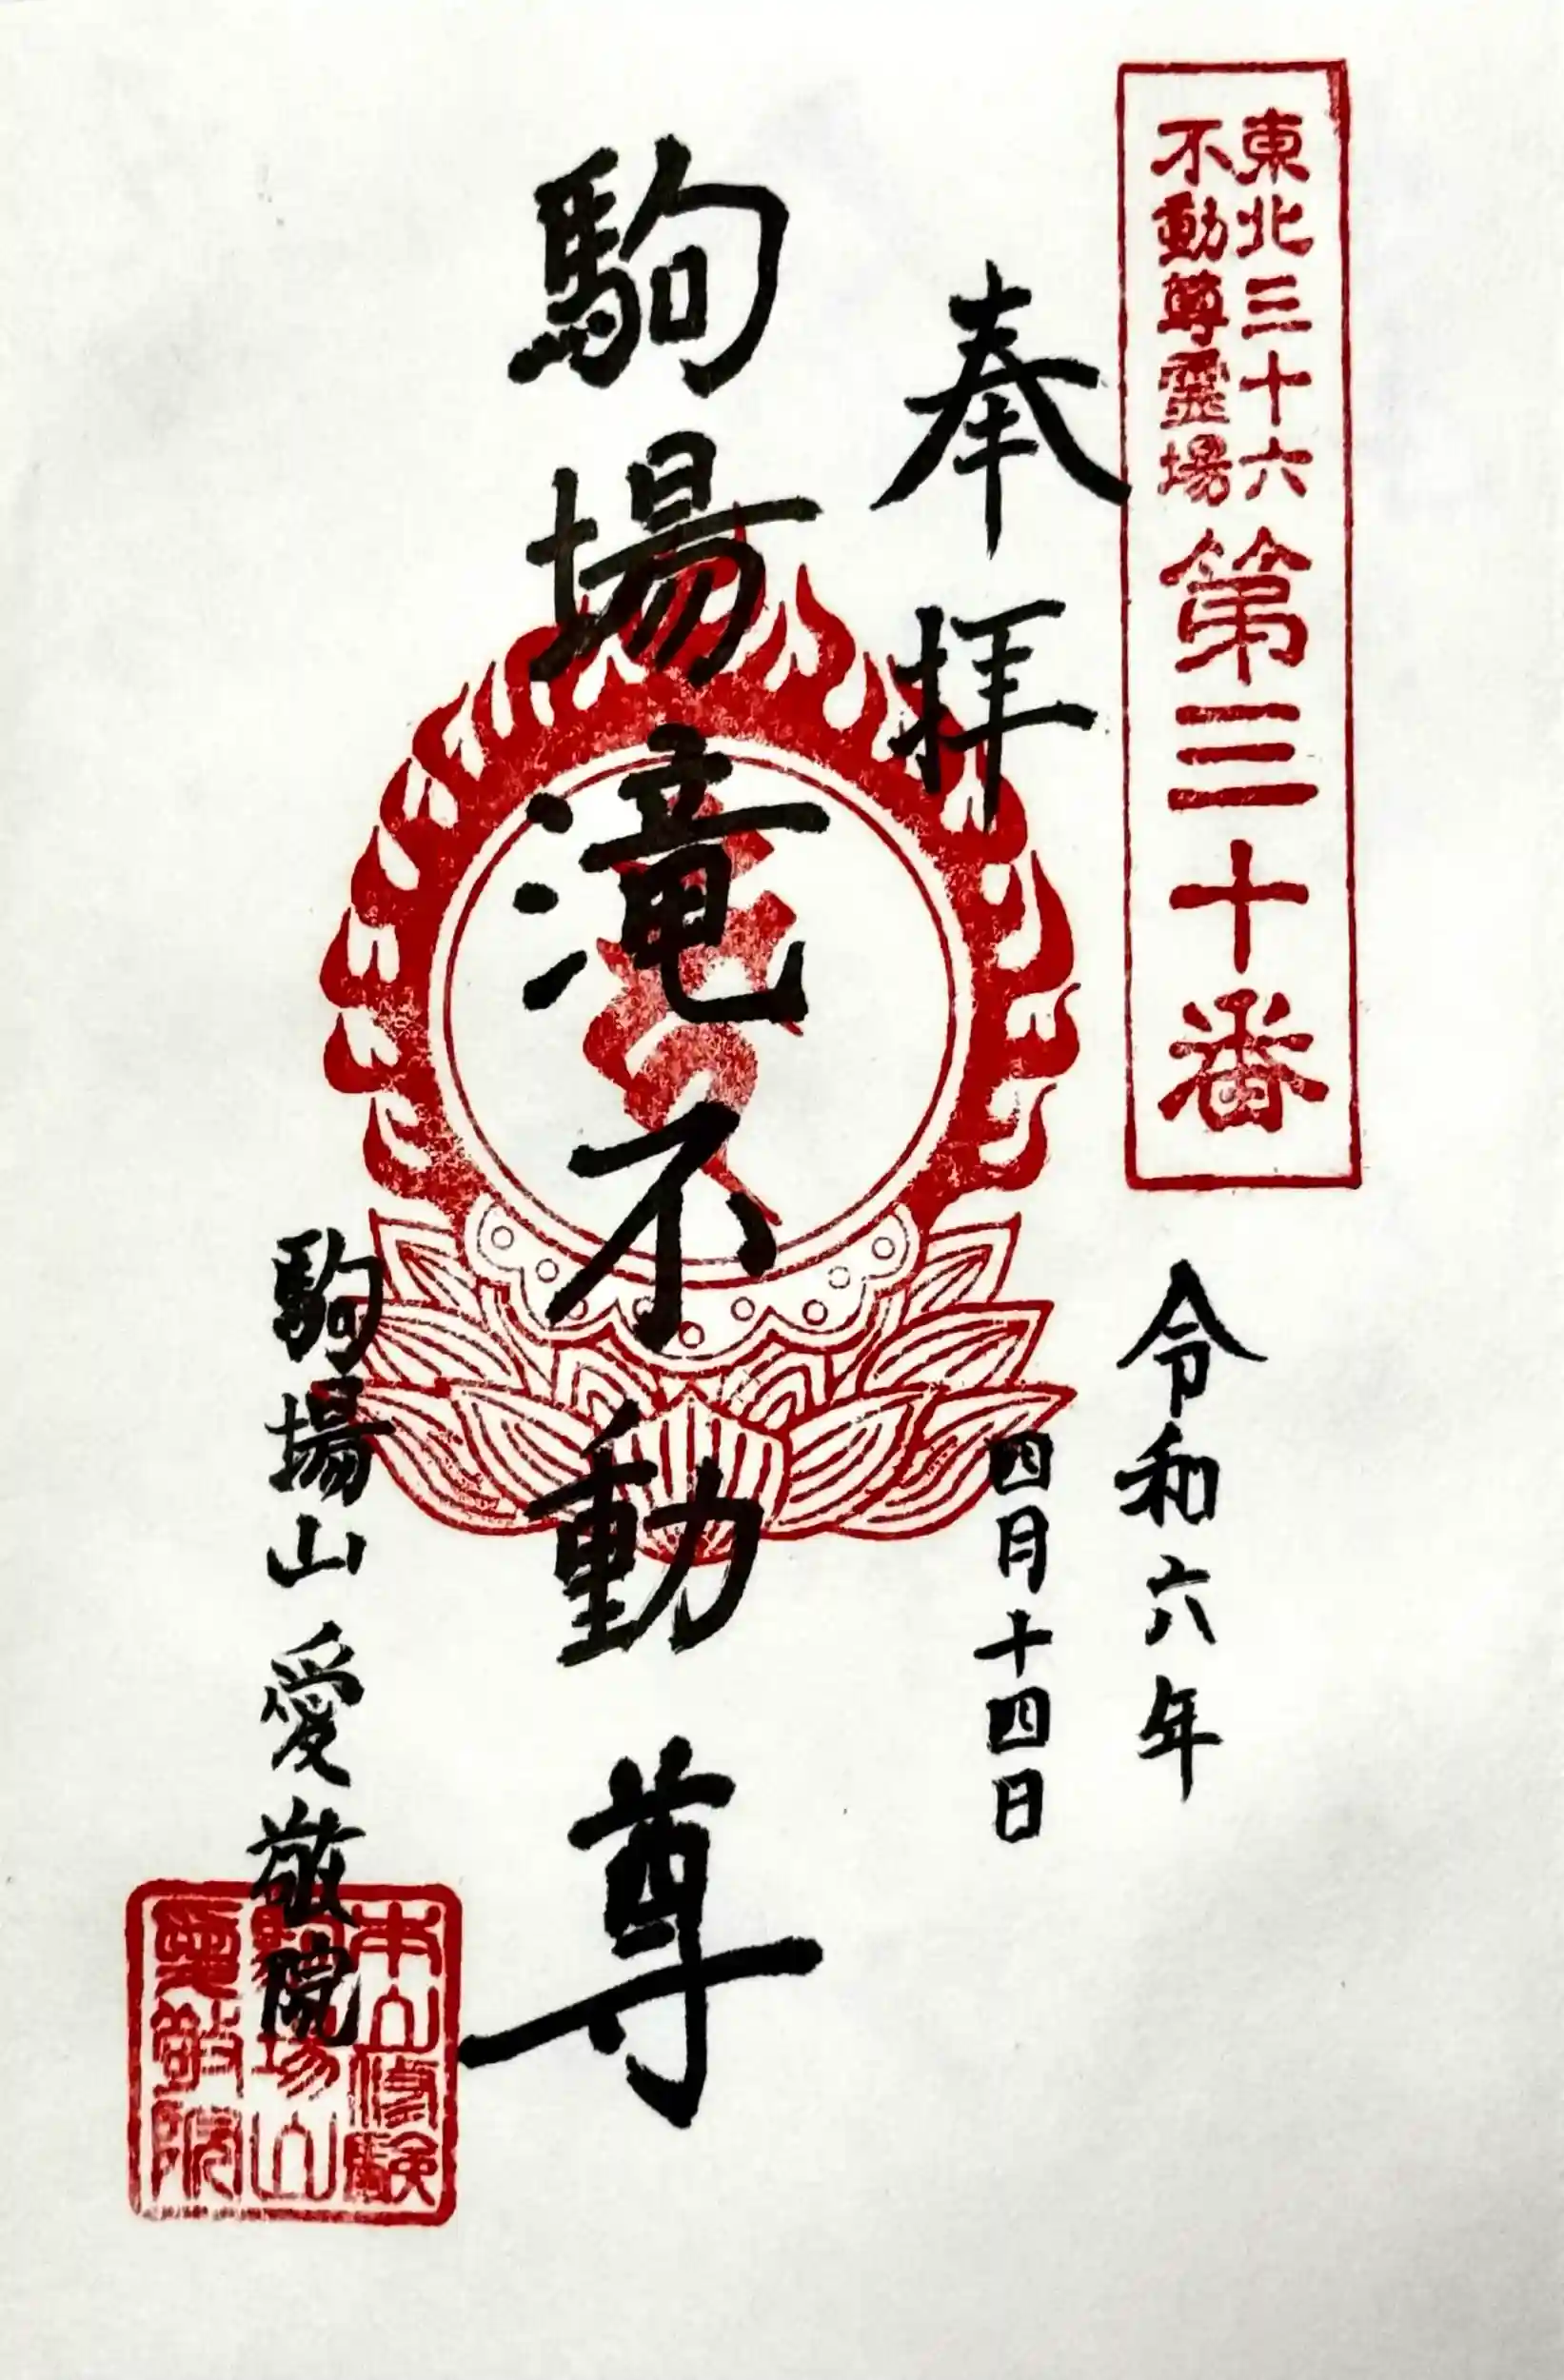 東北三十六
不動尊霊場
第三十番
奉拝
令和六年
四月十四日
駒場滝不動尊
駒場山愛敬院
本山修験
駒場山
愛敬院